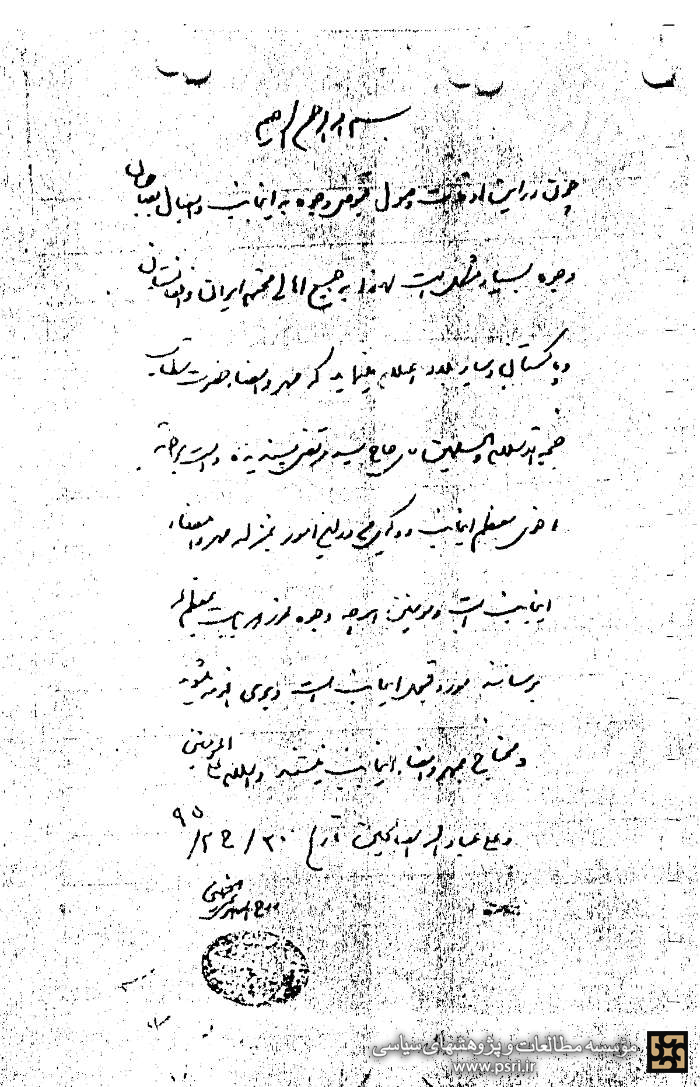 بسم الله الرحمن الرحیم
چون در این اوقات وصول قبوض وجوه به اینجانب و ایصال به صاحبان
وجوه بسیار مشکل است لهذا به جمیع اهالی محترم ایران و افغانستان
و پاکستان و سایر بلاد اعلام مینماید که مهر و امضاء حضرت مستطاب
حجة الاسلام والمسلمین آقای حاج سید مرتضی پسندیده دامت برکاته
اخوی معظم اینجانب و وکیل در این امور بمنزله مهر و امضاء
اینجانب است و مؤمنین هر چه وجوه نزد معظم له
برسانند مورد قبول اینجانب است و بری الذمه میشوند
و محتاج بمهر و امضاء اینجانب نیستند والسلام علی المؤمنین
و علی عباد الله الصالحین تاریخ ۲۰/ ج ۲/ ۹۵
روح الله الموسوی الخمینی
مؤسسه مطالعات و پژوهشهای سیاسی
www.psri.ir